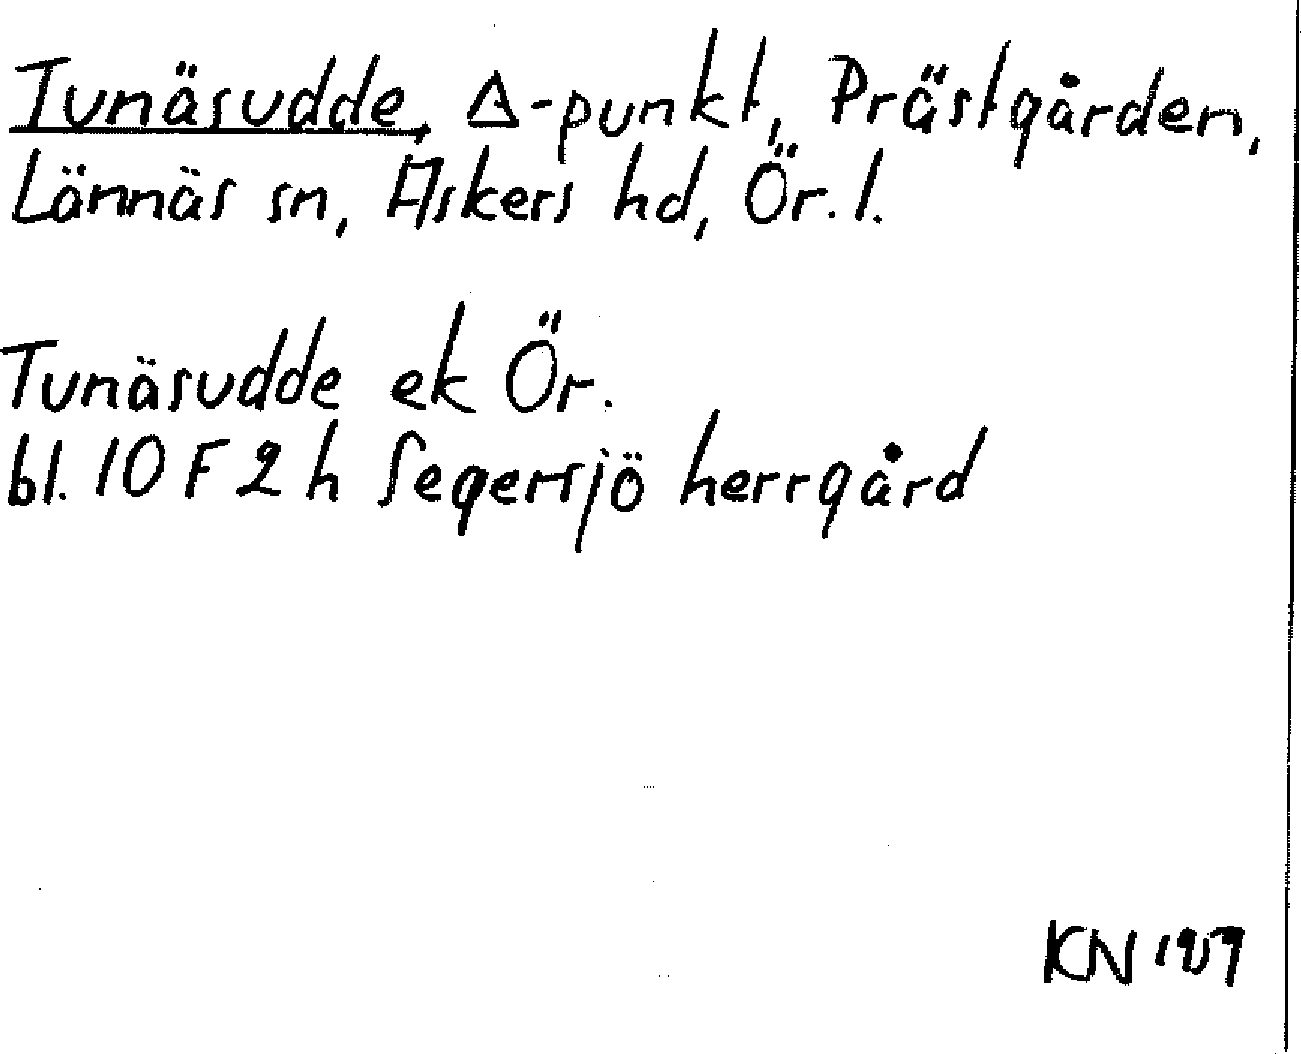 Tunäsudde, Δ-punkt, Prästgården,
Lännäs sn, Askers hd, Ör. l.
Tunäsudde ek Ör.
bl. 10 F 2 h Segersjö herrgård
KN